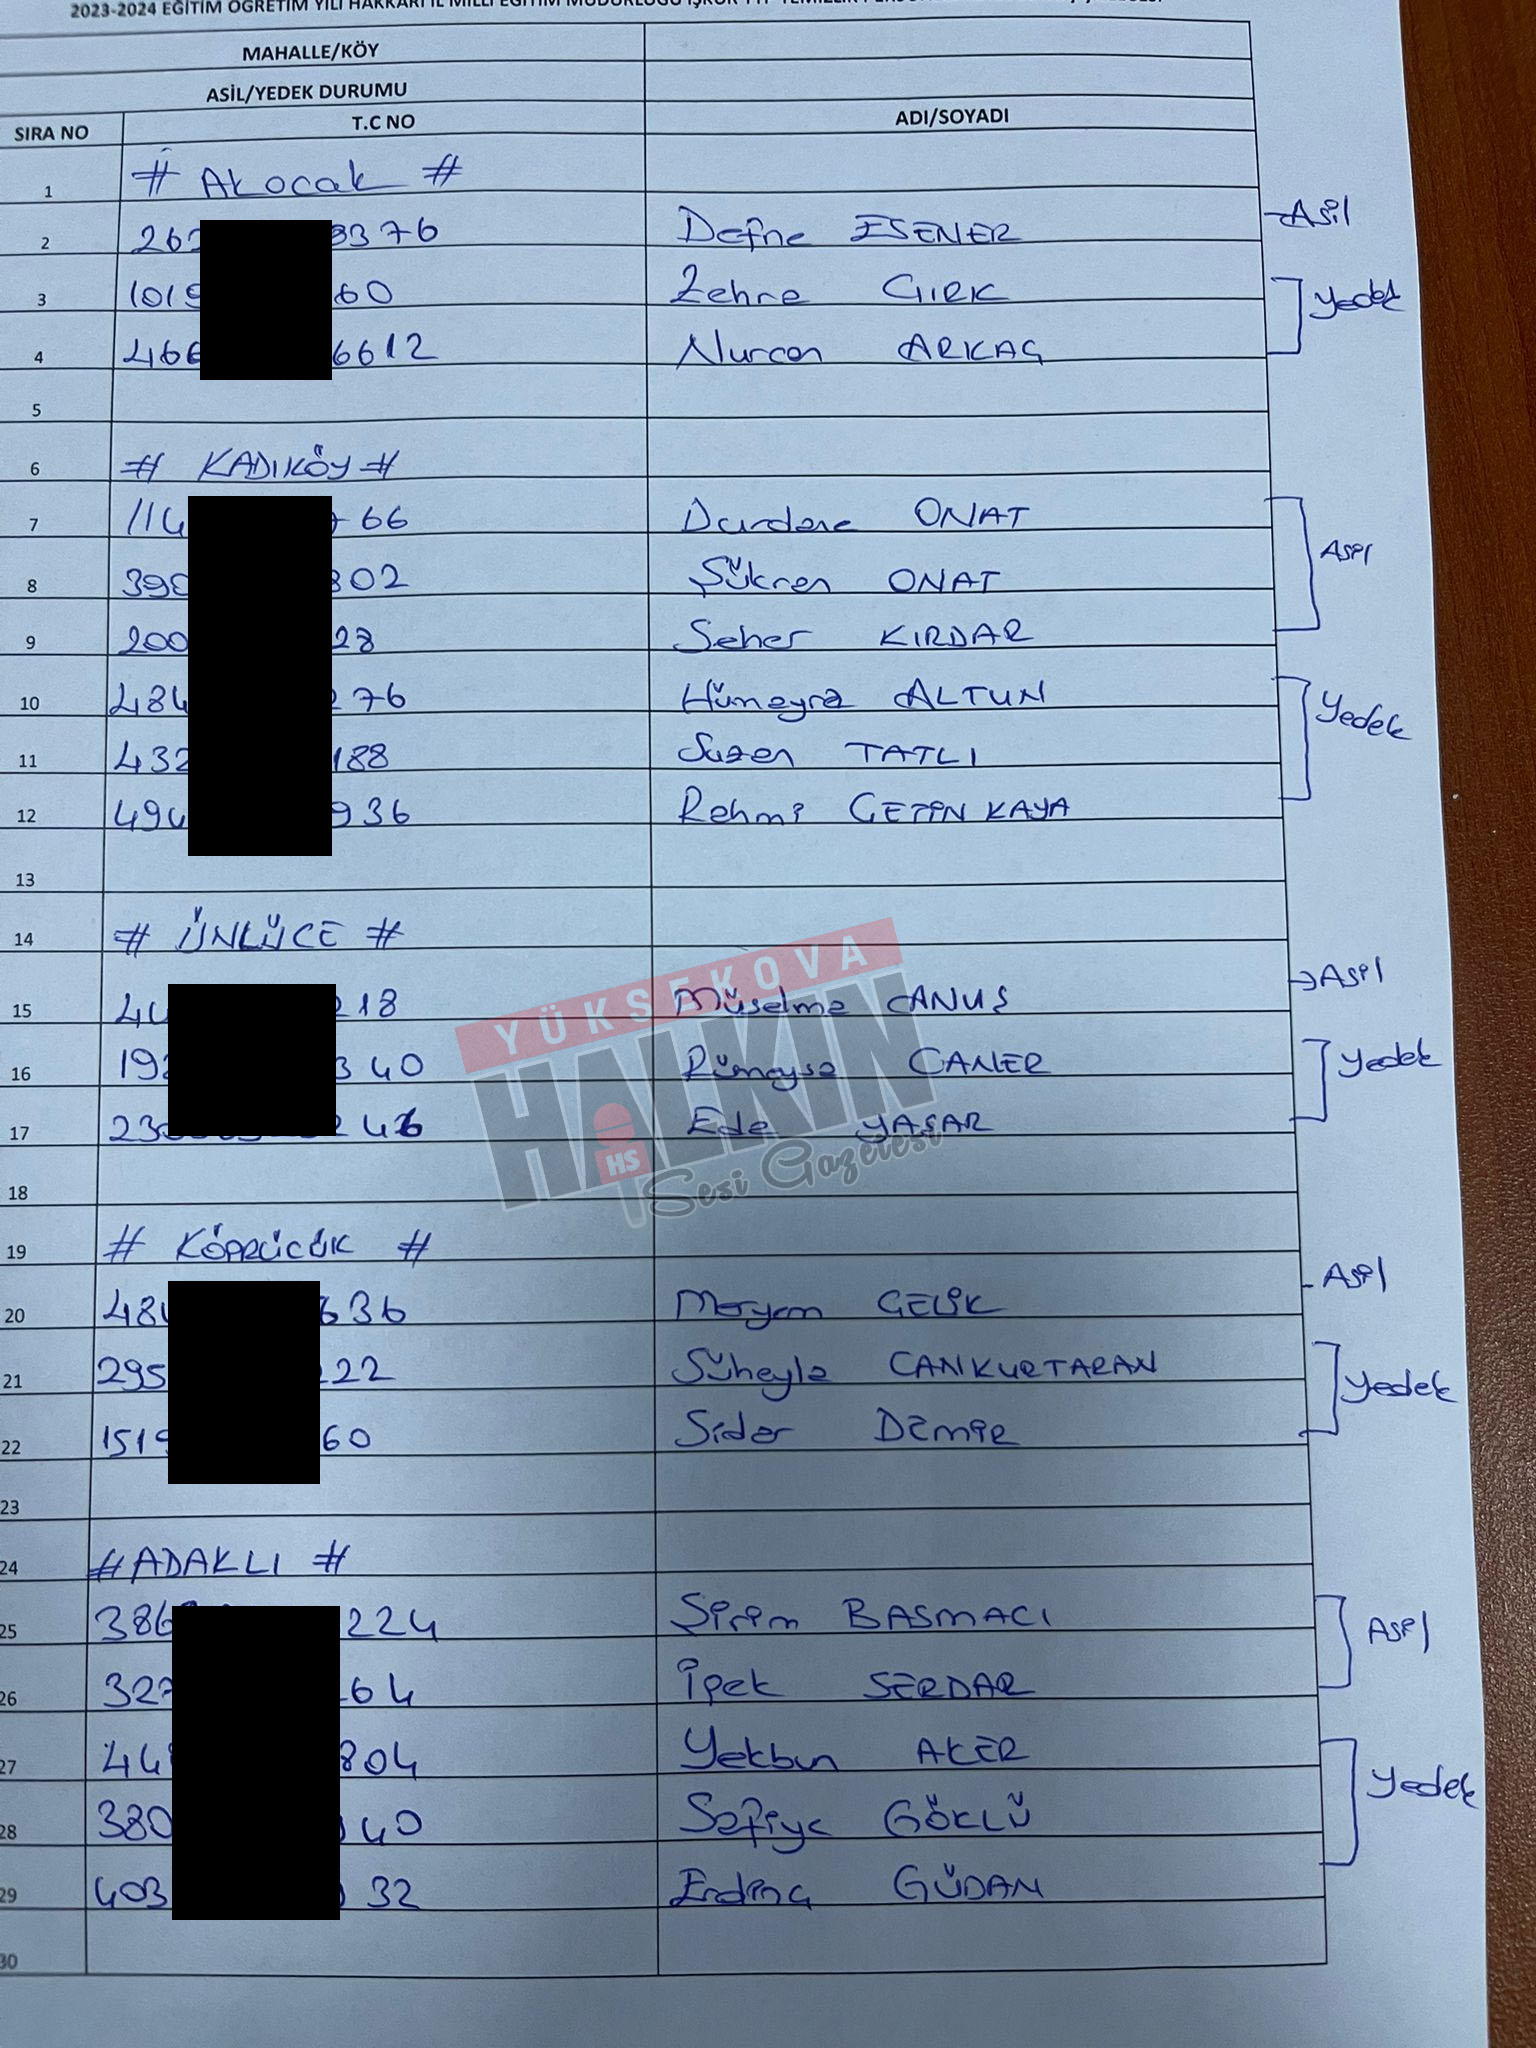 2023-2024 EĞİTİM ÖĞRETİM YILI HAKKARİ İL MİLLİ EĞİTİM MÜDÜRLÜĞÜ İŞKUR TYP TEMİZLİK
MAHALLE/KÖY
ASİL/YEDEK DURUMU
SIRA NO T.C NO ADI/SOYADI
1 # Akocak #
2 262 3376 Defne ESENER Asil
3 1019 60 Zehra GIRK
Yedek
4 466 6612 Nurcan ARKAÇ
5
6 # KADIKÖY #
7 114 66 Durdane ONAT
Asil
8 390 302 Şükran ONAT
9 200 28 Seher KIRDAR
10 484 276 Hümeyra ALTUN
Yedek
11 432 188 Suzan TATLI
12 494 936 Rahmi ÇETİNKAYA
13
14 # ÜNLÜCE #
15 44 218 Müselma CANUŞ Asil
16 192 340 Rümeysa CANER
Yedek
17 230 246 Eda YAŞAR
18
19 # KÖPRÜCÜK #
20 484 636 Meryem ÇELİK Asil
21 295 222 Süheyla CANKURTARAN
Yedek
22 1519 60 Sidar DEMİR
23
24 # ADAKLI #
25 386 224 Şirin BASMACI
Asil
26 327 64 İpek SERDAR
27 44 804 Yekbun AKER
Yedek
28 380 40 Safiye GÖKLÜ
29 403 32 Erdinç GÜDAN
30
YÜKSEKOVA
HALKIN
HS
Sesi Gazetesi